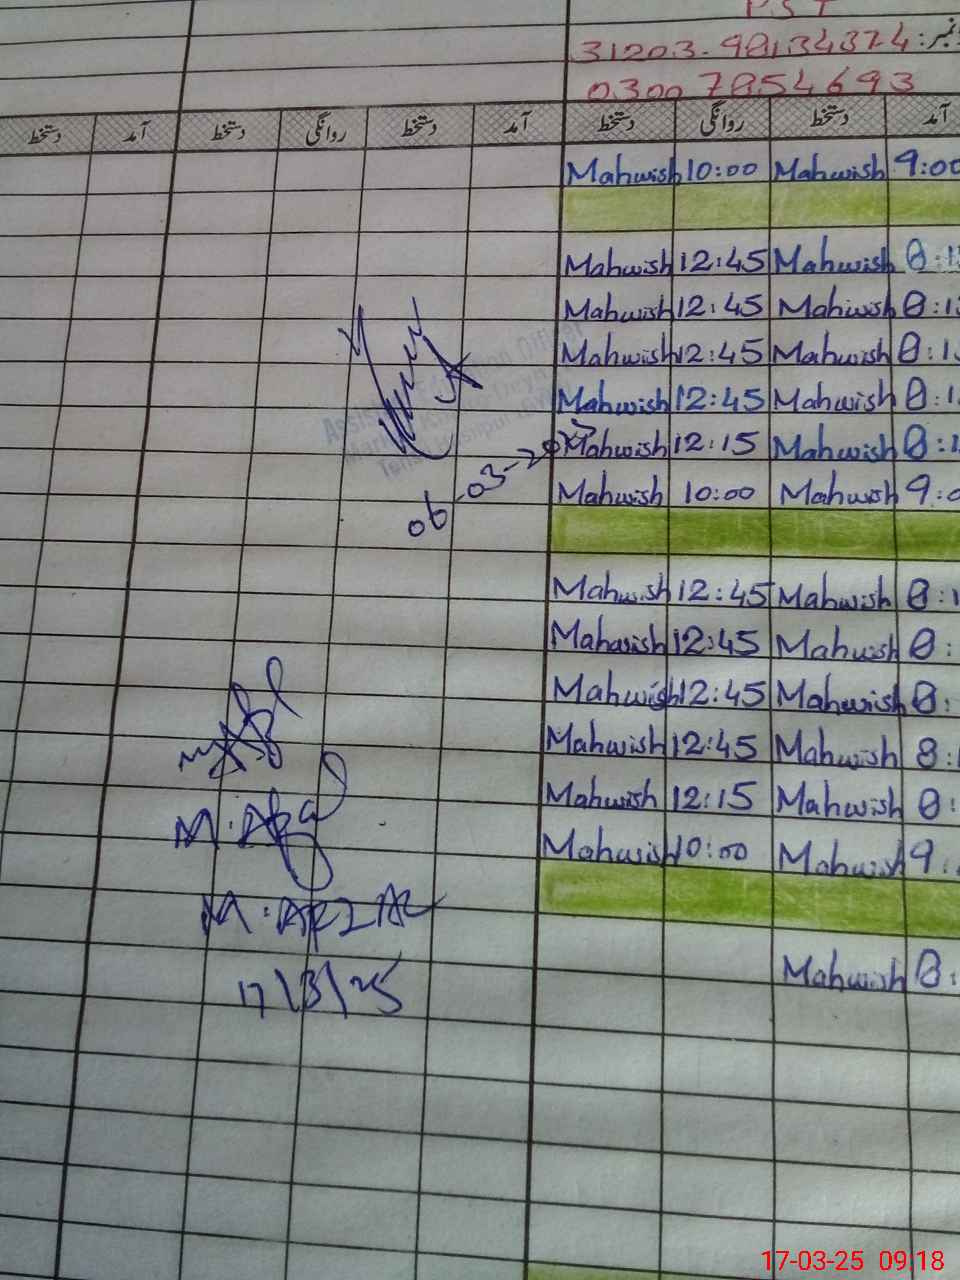 PST
نمبر: 31203-9813437-4
03007854693
آمد دستخط روانگی دستخط آمد دستخط روانگی دستخط آمد دستخط
Mahwish 10:00 Mahwish 9:00
Mahwish 12:45 Mahwish 8:1
Mahwish 12:45 Mahwish 8:1
Mahwish 12:45 Mahwish 8:1
Mahwish 12:45 Mahwish 8:1
Mahwish 12:15 Mahwish 8:1
Mahwish 10:00 Mahwish 9:0
Assistant Education Officer
06-03-2025
Mahwish 12:45 Mahwish 8:1
Mahwish 12:45 Mahwish 8:
Mahwish 12:45 Mahwish 8:
Mahwish 12:45 Mahwish 8:1
Mahwish 12:15 Mahwish 8:
Mahwish 10:00 Mahwish 9:
M. AFZAL
Mahwish 8:
17/3/25
17-03-25 09:18